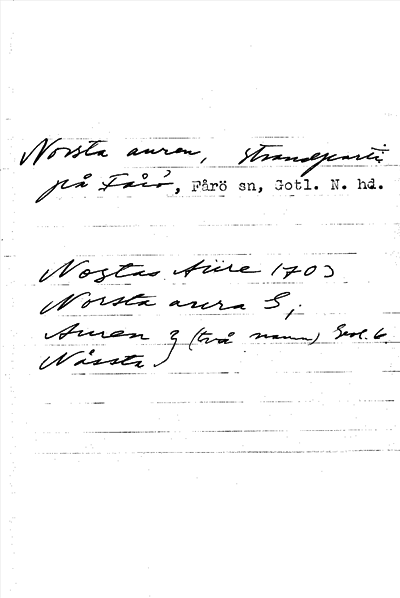 Norsta auren, strandparti
på Fårö, Fårö sn, Gotl. N. hd.
Nogtas Aure 1703
Norsta aura S;
Auren } (två namn) Geol. 6.
Nåssta